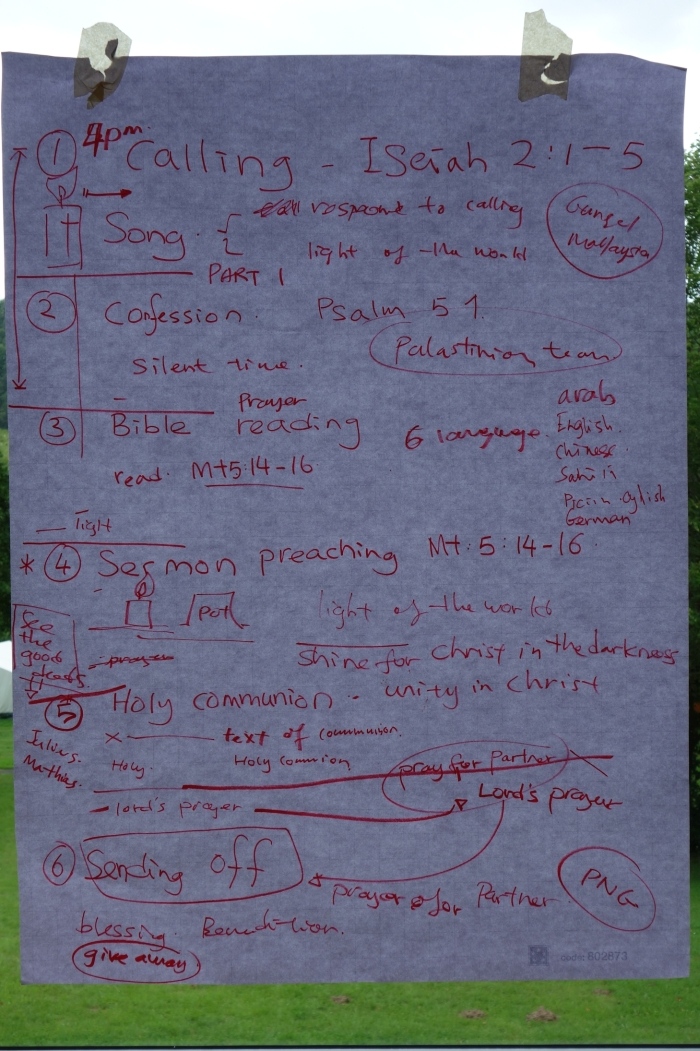 4pm
① Calling - ISeiah 2:1-5
Song. respone to calling
light of the world
Malaysia
PART 1
② Confession. Psalm 51.
Silent time.
Palastinion team
Prayer
③ Bible reading
6 language.
arab
English.
chinese.
German
read. Mt5:14-16
* ④ Sermon preaching Mt. 5:14-16
Pot
light of the world
See
the
good
Shine for Christ in the darkness
prayer
⑤ Holy communion - unity in Christ
text of
Holy.
pray for partner
- lord's prayer
Lord's prayer
⑥ Sending off
prayer for Partner
PNG
blessing.
give away
802873